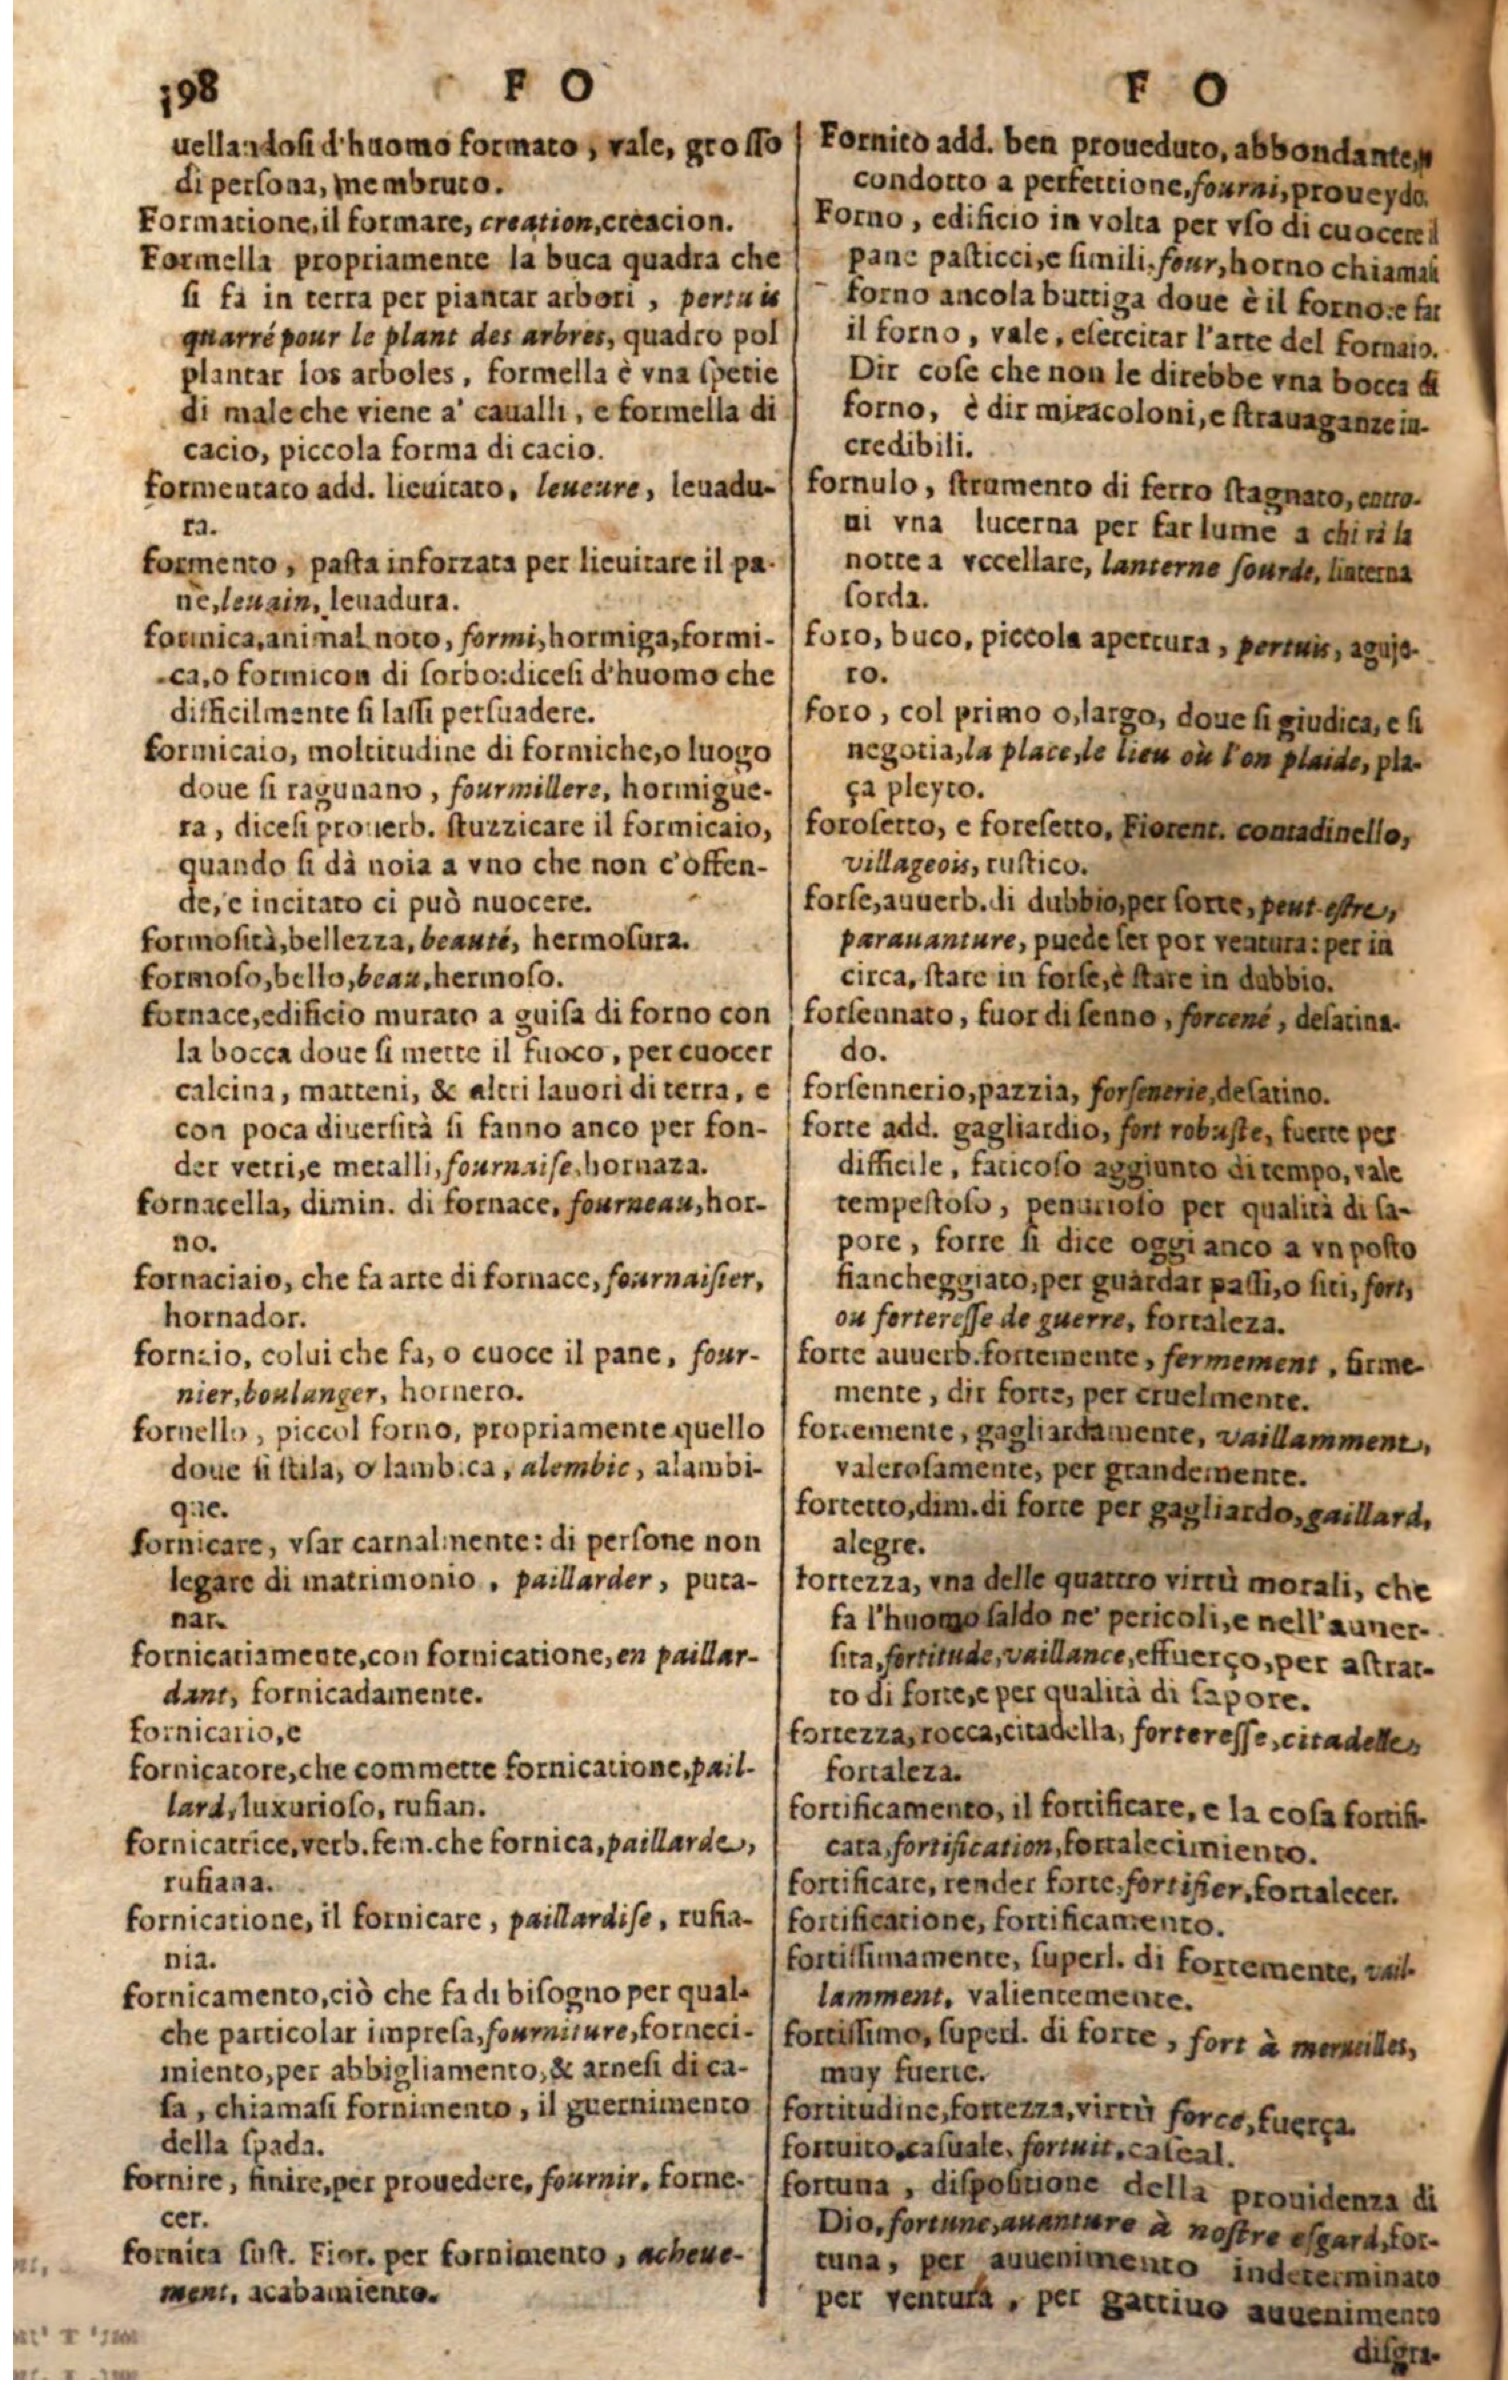 198 F O
uellandosi d'huomo formato, vale, grosso
di persona, membruto.
Formatione, il formare, creation, creacion.
Formella propriamente la buca quadra che
si fa in terra per piantar arbori, pertuis
quarré pour le plant des arbres, quadro pol
plantar los arboles, formella è vna spetie
di male che viene a' caualli, e formella di
cacio, piccola forma di cacio.
formentato add. lieuitato, leueure, leuadu-
ra.
formento, pasta inforzata per lieuitare il pa-
ne, leuain, leuadura.
formica, animal noto, formi, hormiga, formi-
ca, o formicon di sorbo: dicesi d'huomo che
difficilmente si lassi persuadere.
formicaio, moltitudine di formiche, o luogo
doue si ragunano, fourmillere, hormigue-
ra, dicesi prouerb. stuzzicare il formicaio,
quando si dà noia a vno che non c'offen-
de, e incitato ci può nuocere.
formosità, bellezza, beauté, hermosura.
formoso, bello, beau, hermoso.
fornace, edificio murato a guisa di forno con
la bocca doue si mette il fuoco, per cuocer
calcina, matteni, & altri lauori di terra, e
con poca diuersità si fanno anco per fon-
der vetri, e metalli, fournaise, hornaza.
fornacella, dimin. di fornace, fourneau, hor-
no.
fornaciaio, che fa arte di fornace, fournaisier,
hornador.
fornaio, colui che fa, o cuoce il pane, four-
nier, boulanger, hornero.
fornello, piccol forno, propriamente quello
doue si stila, o lambica, alembic, alambi-
que.
fornicare, vsar carnalmente: di persone non
legare di matrimonio, paillarder, puta-
nar.
fornicariamente, con fornicatione, en paillar-
dant, fornicadamente.
fornicario, e
fornicatore, che commette fornicatione, pail-
lard, luxurioso, rufian.
fornicatrice, verb. fem. che fornica, paillarde,
rufiana.
fornicatione, il fornicare, paillardise, rufia-
nia.
fornicamento, ciò che fa di bisogno per qual-
che particolar impresa, fourniture, forneci-
miento, per abbigliamento, & arnesi di ca-
sa, chiamasi fornimento, il guernimento
della spada.
fornire, finire, per prouedere, fournir, forne-
cer.
fornita sust. Fior. per fornimento, acheue-
ment, acabamiento.
F O
Fornito add. ben proueduto, abbondante,
condotto a perfettione, fourni, proueydo.
Forno, edificio in volta per vso di cuocere il
pane pasticci, e simili, four, horno chiamasi
forno ancola buttiga doue è il forno: e far
il forno, vale, esercitar l'arte del fornaio.
Dir cose che non le direbbe vna bocca di
forno, è dir miracoloni, e strauaganze in-
credibili.
fornulo, strumento di ferro stagnato, entro-
ui vna lucerna per far lume a chi và la
notte a vccellare, lanterne sourde, linterna
sorda.
foro, buco, piccola apertura, pertuis, aguje-
ro.
foro, col primo o, largo, doue si giudica, e si
negotia, la place, le lieu où l'on plaide, pla-
ça pleyto.
forosetto, e foresetto, Fiorent. contadinello,
villageois, rustico.
forse, auuerb. di dubbio, per sorte, peut estre,
parauanture, puede ser por ventura: per in
circa, stare in forse, è stare in dubbio.
forsennato, fuor di senno, forcené, desatina-
do.
forsennerio, pazzia, forsenerie, desatino.
forte add. gagliardio, fort robuste, fuerte per
difficile, faticoso aggiunto di tempo, vale
tempestoso, penurioso per qualità di sa-
pore, forte si dice oggi anco a vn posto
fiancheggiato, per guardar passi, o siti, fort,
ou forteresse de guerre, fortaleza.
forte auuerb. fortemente, fermement, firme-
mente, dir forte, per cruelmente.
fortemente, gagliardamente, vaillamment,
valerosamente, per grandemente.
fortetto, dim. di forte per gagliardo, gaillard,
alegre.
fortezza, vna delle quattro virtù morali, che
fa l'huomo saldo ne' pericoli, e nell'auuer-
sita, fortitude, vaillance, effuerço, per astrat-
to di forte, e per qualità di sapore.
fortezza, rocca, citadella, forteresse, citadelle,
fortaleza.
fortificamento, il fortificare, e la cosa fortifi-
cata, fortification, fortalecimiento.
fortificare, render forte, fortifier, fortalecer.
fortificatione, fortificamento.
fortissimamente, superl. di fortemente, vail-
lamment, valientemente.
fortissimo, superl. di forte, fort à merueilles,
muy fuerte.
fortitudine, fortezza, virtù force, fuerça.
fortuito, casuale, fortuit, caseal.
fortuna, dispositione della prouidenza di
Dio, fortune, auanture à nostre esgard, for-
tuna, per auuenimento indeterminato
per ventura, per gattiuo auuenimento
disgra-